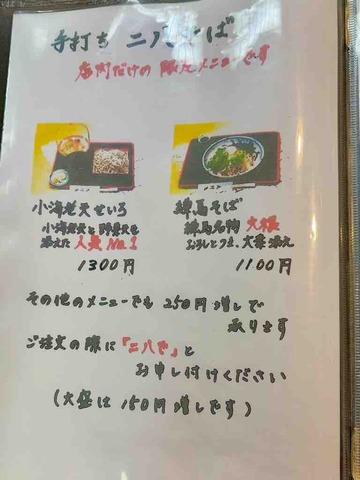 手打ち 二八そば
店内だけの 限定メニューです
小海老天せいろ
小海老天と野菜天を
添えた 人気No.1
1300円
練馬そば
練馬名物 大根
おろしと つま、大葉添え
1100円
その他のメニューでも 250円増しで
承ります
ご注文の際に「二八で」と
お申し付けください
(大盛は150円増しです)